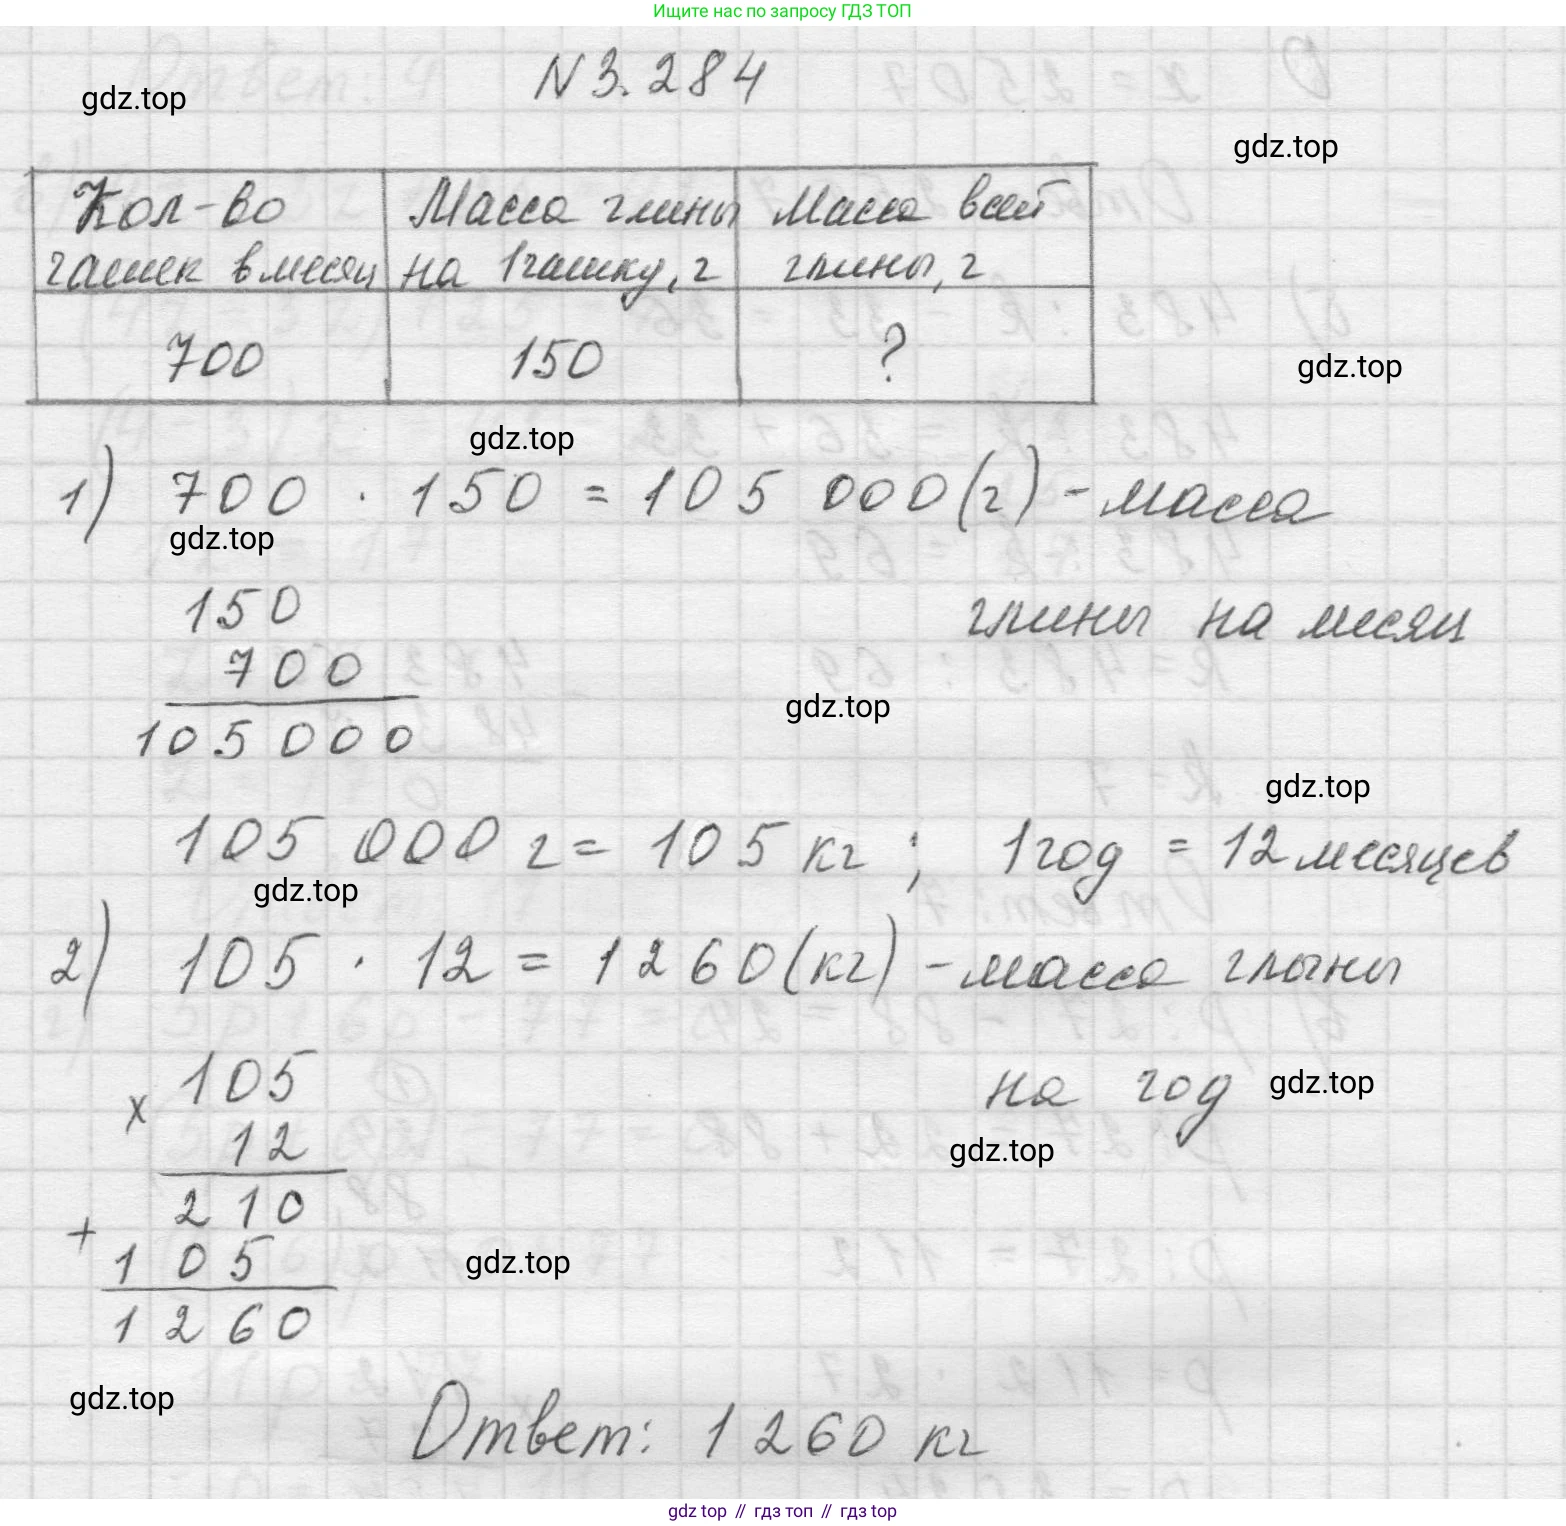 Ищите нас по запросу ГДЗ ТОП
N 3.284
gdz.top
gdz.top
Кол-во чашек в месяц
Масса глины на 1 чашку, г
Масса всей глины, г
700
150
?
gdz.top
gdz.top
1) 700 · 150 = 105 000 (г) - масса
gdz.top
глины на месяц
150
700
105000
gdz.top
gdz.top
105 000 г = 105 кг ; 1 год = 12 месяцев
gdz.top
2) 105 · 12 = 1260 (кг) - масса глыны
на год
gdz.top
gdz.top
x 105
12
210
+
105
gdz.top
1260
gdz.top
Ответ: 1260 кг
gdz.top // гдз топ // gdz.top